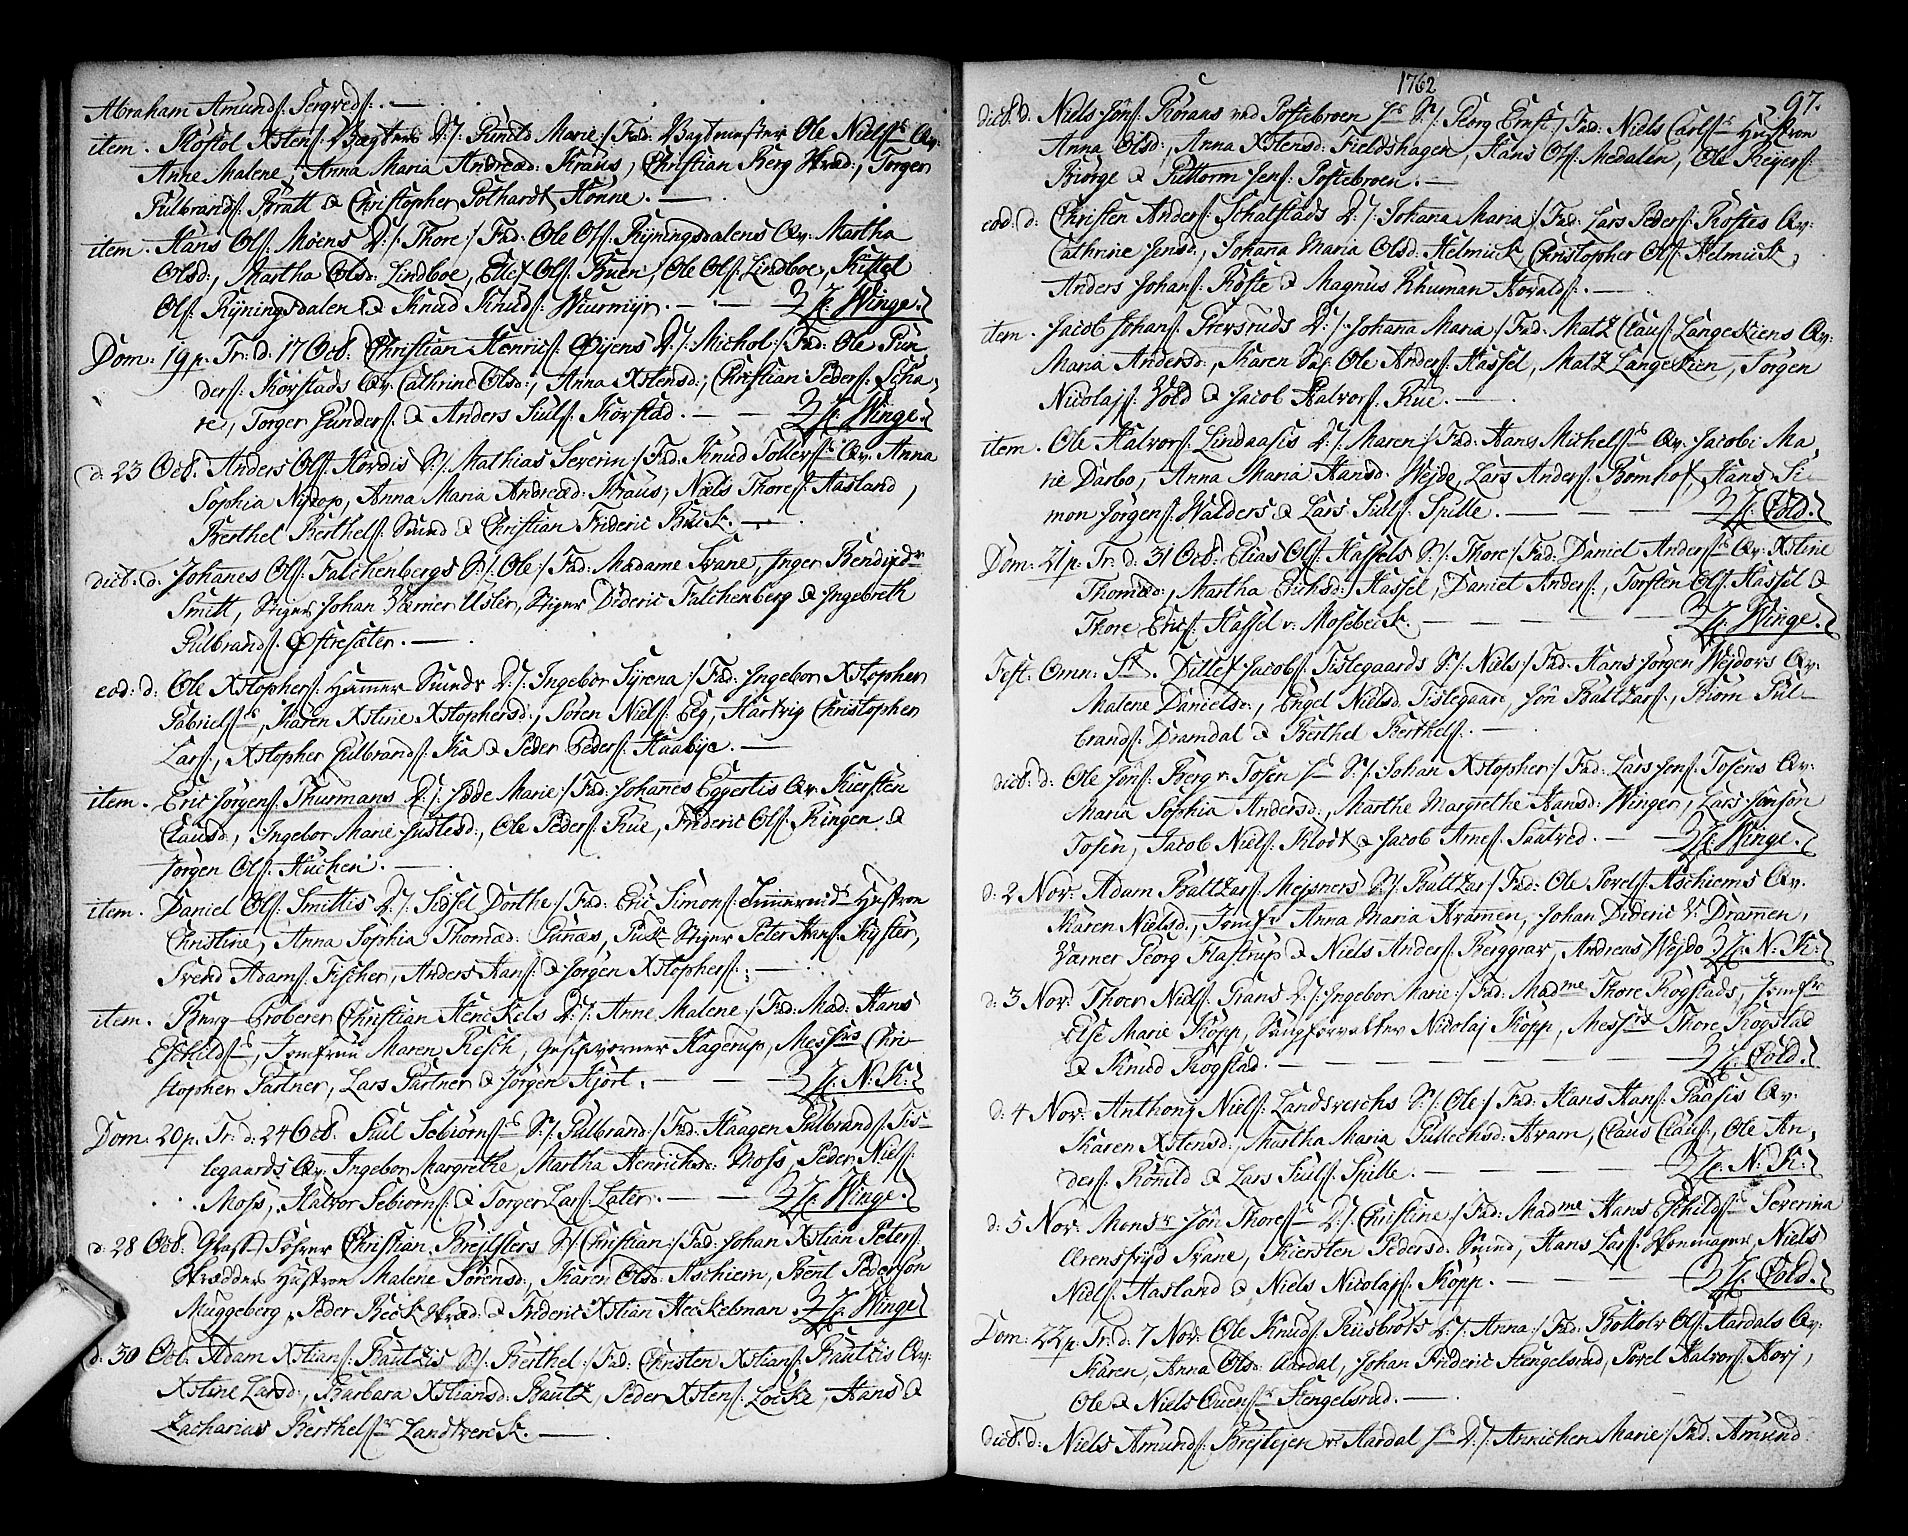 Abraham Amunds: Sergveds: —
item. Kostol Xstens: Bægters D:/: Gunild Marie:/ Fad: Bagtmester Ole Niels: Qv:
Anne Malene, Anna Maria Andreæd: Kraus, Christian Berg Skræd:, Torger
Gulbrands: Bratt & Christopher Gothardt Hønne. —
item. Hans Ols: Moens D:/: Thore:/ Fad: Ole Ols: Ryningsdalens Qv: Martha
Olsd:, Martha Olsd: Lindboe, Ellef Ols: Buen, Ole Ols: Lindboe, Kittel
Ols: Ryningsdalen & Knud Knuds: Wurmyr. — — H: Winge.
Dom: 19 p. Tr: d: 17 Oct: Christian Henrics: Øyens D:/: Michol:/ Fad: Ole Gun
ders: Korstads Qv: Cathrine Olsd:, Anna Xstensd:, Christian Peders: Scha,
re, Torger Gunders: & Anders Juuls: Korstad. — — H: Winge.
d: 23 Oct: Anders Ols: Hordis S:/: Mathias Severin:/ Fad: Knud Tollers: Qv: Anna
Sophia Nystop, Anna Maria Andreæd: Kraus, Niels Thores: Aasland,
Berthel Berthels: Smed & Christian Frideric Buck. —
dict: d: Johanes Ols: Falchenbergs S:/: Ole:/ Fad: Madame Svane, Inger Bendixdr
Smitt, Stiger Johan Værner Usler, Stiger Dideric Falchenberg & Ingebreth
Gulbrands: Østresäter. —
eod: d: Ole Xstophers: Hammer Smeds D:/: Ingebor Syrena:/ Fad: Ingebor Xstopher
Gabriels:, Karen Xstine Xstophersd:, Søren Niels: Eeg, Hartvig Christopher
Lars:, Xstopher Gulbrands: Kia & Peder Peders: Haabye. —
item. Eric Jørgens: Thurmans D:/: Jæde Marie:/ Fad: Johanes Eggertis Qv: Kiersten
Clausd:, Ingebor Marie Justesd:, Ole Peders: Rue, Frideric Ols: Ringen &
Jørgen Ols: Kuchen. —
item. Daniel Ols: Smittis D:/: Sidsel Dorthe:/ Fad: Eric Simons: Hustron
Christine, Anna Sophia Thomæd: Gunnas, Puk Stiger Peter Hans: Kyster,
Svend Adams: Fischer, Anders Hans: & Jørgen Xstophers: —
item. Berg Proberer Christian Henckels D:/: Anne Malene:/ Fad: Mad: Hans
Eschilds:, Jomfrue Maren Resch, Geschvorner Hagerup, Messrs Chri-
stopher Gartner, Lars Gartner & Jørgen Hjort. — — H: N: K:
Dom: 20 p. Tr: d: 24 Oct: Juul Sebiørns: S:/: Gulbrand:/ Fad: Haagen Gulbrands: Tis-
legaards Qv: Ingebor Margrethe, Martha Henrichsd: Moss, Peder Niels:
Moss, Halvor Sebiørns: & Torger Lars: Later. — — H: Winge.
d: 28 Oct: Christian Breitsters S:/: Christian:/ Fad: Johan Xstian Peters:
Skrædders Hustron Malene Sørensd:, Karen Olsd: Aschiem, Bent Pedersøn
Muggeberg, Peder Beck Skræd: & Frideric Xstian Heckelman. H: Winge
d: 30 Oct: Adam Xstians: Bautzis S:/: Berthel:/ Fad: Christen Xstians: Bautzis Qv:
Xstine Larsd:, Barbara Xstiansd: Bautz, Peder Xstens: Locke, Hans &
Zacharias Berthels: Landverck. —
1762
97.
dict: d: Niels Jøns: Korans ved Postebroen S:/: Georg Ernst:/ Fad: Niels Carls: Hustron
Anna Olsd:, Anna Xstensd: Fieldshagen, Hans Ols: Medalen, Ole Reyers:
Biørge & Guttorm Jens: Postebroen. —
eod: d: Christen Anders: Schalstads D:/: Johana Maria:/ Fad: Lars Peders: Kostes Qv:
Cathrine Jensd:, Johana Maria Olsd: Helmuck, Christopher Ols: Helmuck,
Anders Johans: Koste & Magnus Rhuman Hovalds: —
item. Jacob Johans: Prersruds D:/: Johana Maria:/ Fad: Matz Claus: Langeskiens Qv:
Maria Andersd:, Karen Sal: Ole Anders: Hassel, Matz Langeskien, Jørgen
Nicolajs: Vold & Jacob Halvors: Rue. —
item. Ole Halvors: Lindaasis D:/: Maren:/ Fad: Hans Michels: Qv: Jacobi Ma
rie Darbo, Anna Maria Hansd: Wejde, Lars Anders: Bomhof, Hans Si-
mon Jørgens: Walders & Lars Juuls: Spille. — — — H: Cold.
Dom: 21 p. Tr: d: 31 Oct: Elias Ols: Hassels S:/: Thore:/ Fad: Daniel Anders: Qv: Xstine
Thomæd:, Martha Erichsd: Hassel, Daniel Anders:, Torsten Ols: Hassel &
Thore Erics: Hassel v: Mosebeck. — — — H: Winge.
Fest: Omn: St: Ditlef Jacobs: Tislegaards S:/: Niels:/ Fad: Hans Jørgen Wejdors Qv:
Malene Danielsd:, Engel Nielsd: Tislegaard, Jøn Baltzars:, Thom Gul-
brands: Dramdal & Berthel Berthels: —
dict: d: Ole Jøns: Berg v: Tosen S:/: Johan Xstopher:/ Fad: Lars Jøns: Tosens Qv:
Maria Sophia Andersd:, Marthe Margrethe Hansd: Winger, Lars Jønsøn
Tosen, Jacob Niels: Klodt & Jacob Arnes: Saatved. — H: Winge.
d: 2 Nov: Adam Baltzars: Mejsners S:/: Baltzar:/ Fad: Ole Povels: Aschiems Qv:
Karen Nielsd:, Jomfr Anna Maria Kramen, Johan Dideric V: Dramen,
Værner Georg Flastrup & Niels Anders: Berggrav, Andreas Wejdo H: N: K:
d: 3 Nov: Thoer Niels: Grans D:/: Ingebor Marie:/ Fad: Madme Thore Rogstads, Jomfr
Else Marie Kopp, Saugforvalter Nicolaj Kopp, Messrs Thore Rogstad
& Knud Rogstad. — — — — H: Cold.
d: 4 Nov: Anthonj Niels: Landsverchs S:/: Ole:/ Fad: Hans Hans: Paasis Qv:
Karen Xstensd:, Martha Maria Gullechsd: Hvam, Claus Claus:, Ole An,
ders: Rønild & Lars Juuls: Spille. — — — H: N: K:
d: 5 Nov: Monsr Jøn Thores: D:/: Christine:/ Fad: Madme Hans Eschilds: Severina
Arensfryd Svane, Kiersten Pedersd: Smed, Hans Lars: Skomager, Niels
Niels: Aasland & Niels Nicolajs: Kopp. — — H: Cold.
Dom: 22 p. Tr: d: 7 Nov: Ole Knuds: Riisbrots D:/: Anna:/ Fad: Bottolv Ols: Aardals Qv:
Karen, Anna Olsd: Aardal, Johan Frideric Stengelsrud, Povel Halvors: Horj,
Ole & Niels Ovens: Stengelsrud. —
dict: d: Niels Amunds: Brejlejen v: Aardal D:/: Annichen Marie:/ Fad: Amund